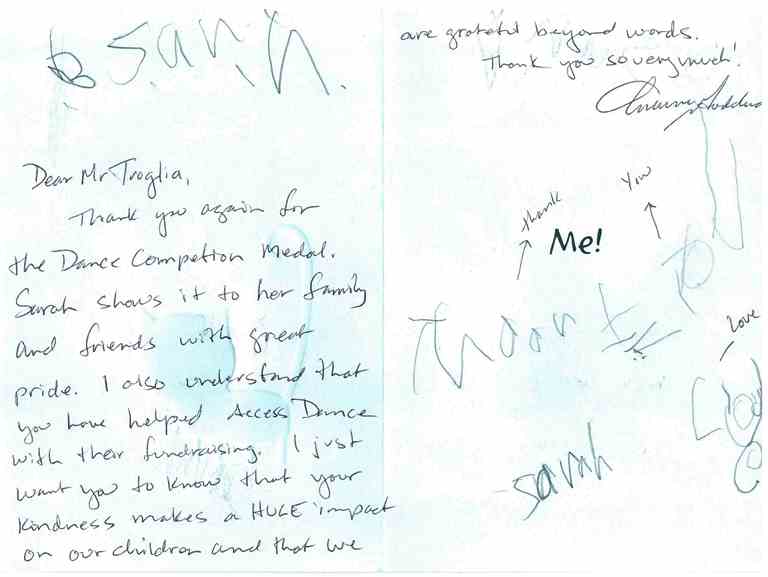 Sarah.
Dear Mr Troglia,
Thank you again for
the Dance Competion Medal.
Sarah shows it to her family
and friends with great
pride. I also understand that
you have helped Access Dance
with their fundraising. I just
want you to know that your
kindness makes a HUGE impact
on our children and that we
are grateful beyond words.
Thank you so very much!
thank
you
Me!
thank
you
Love
sarah